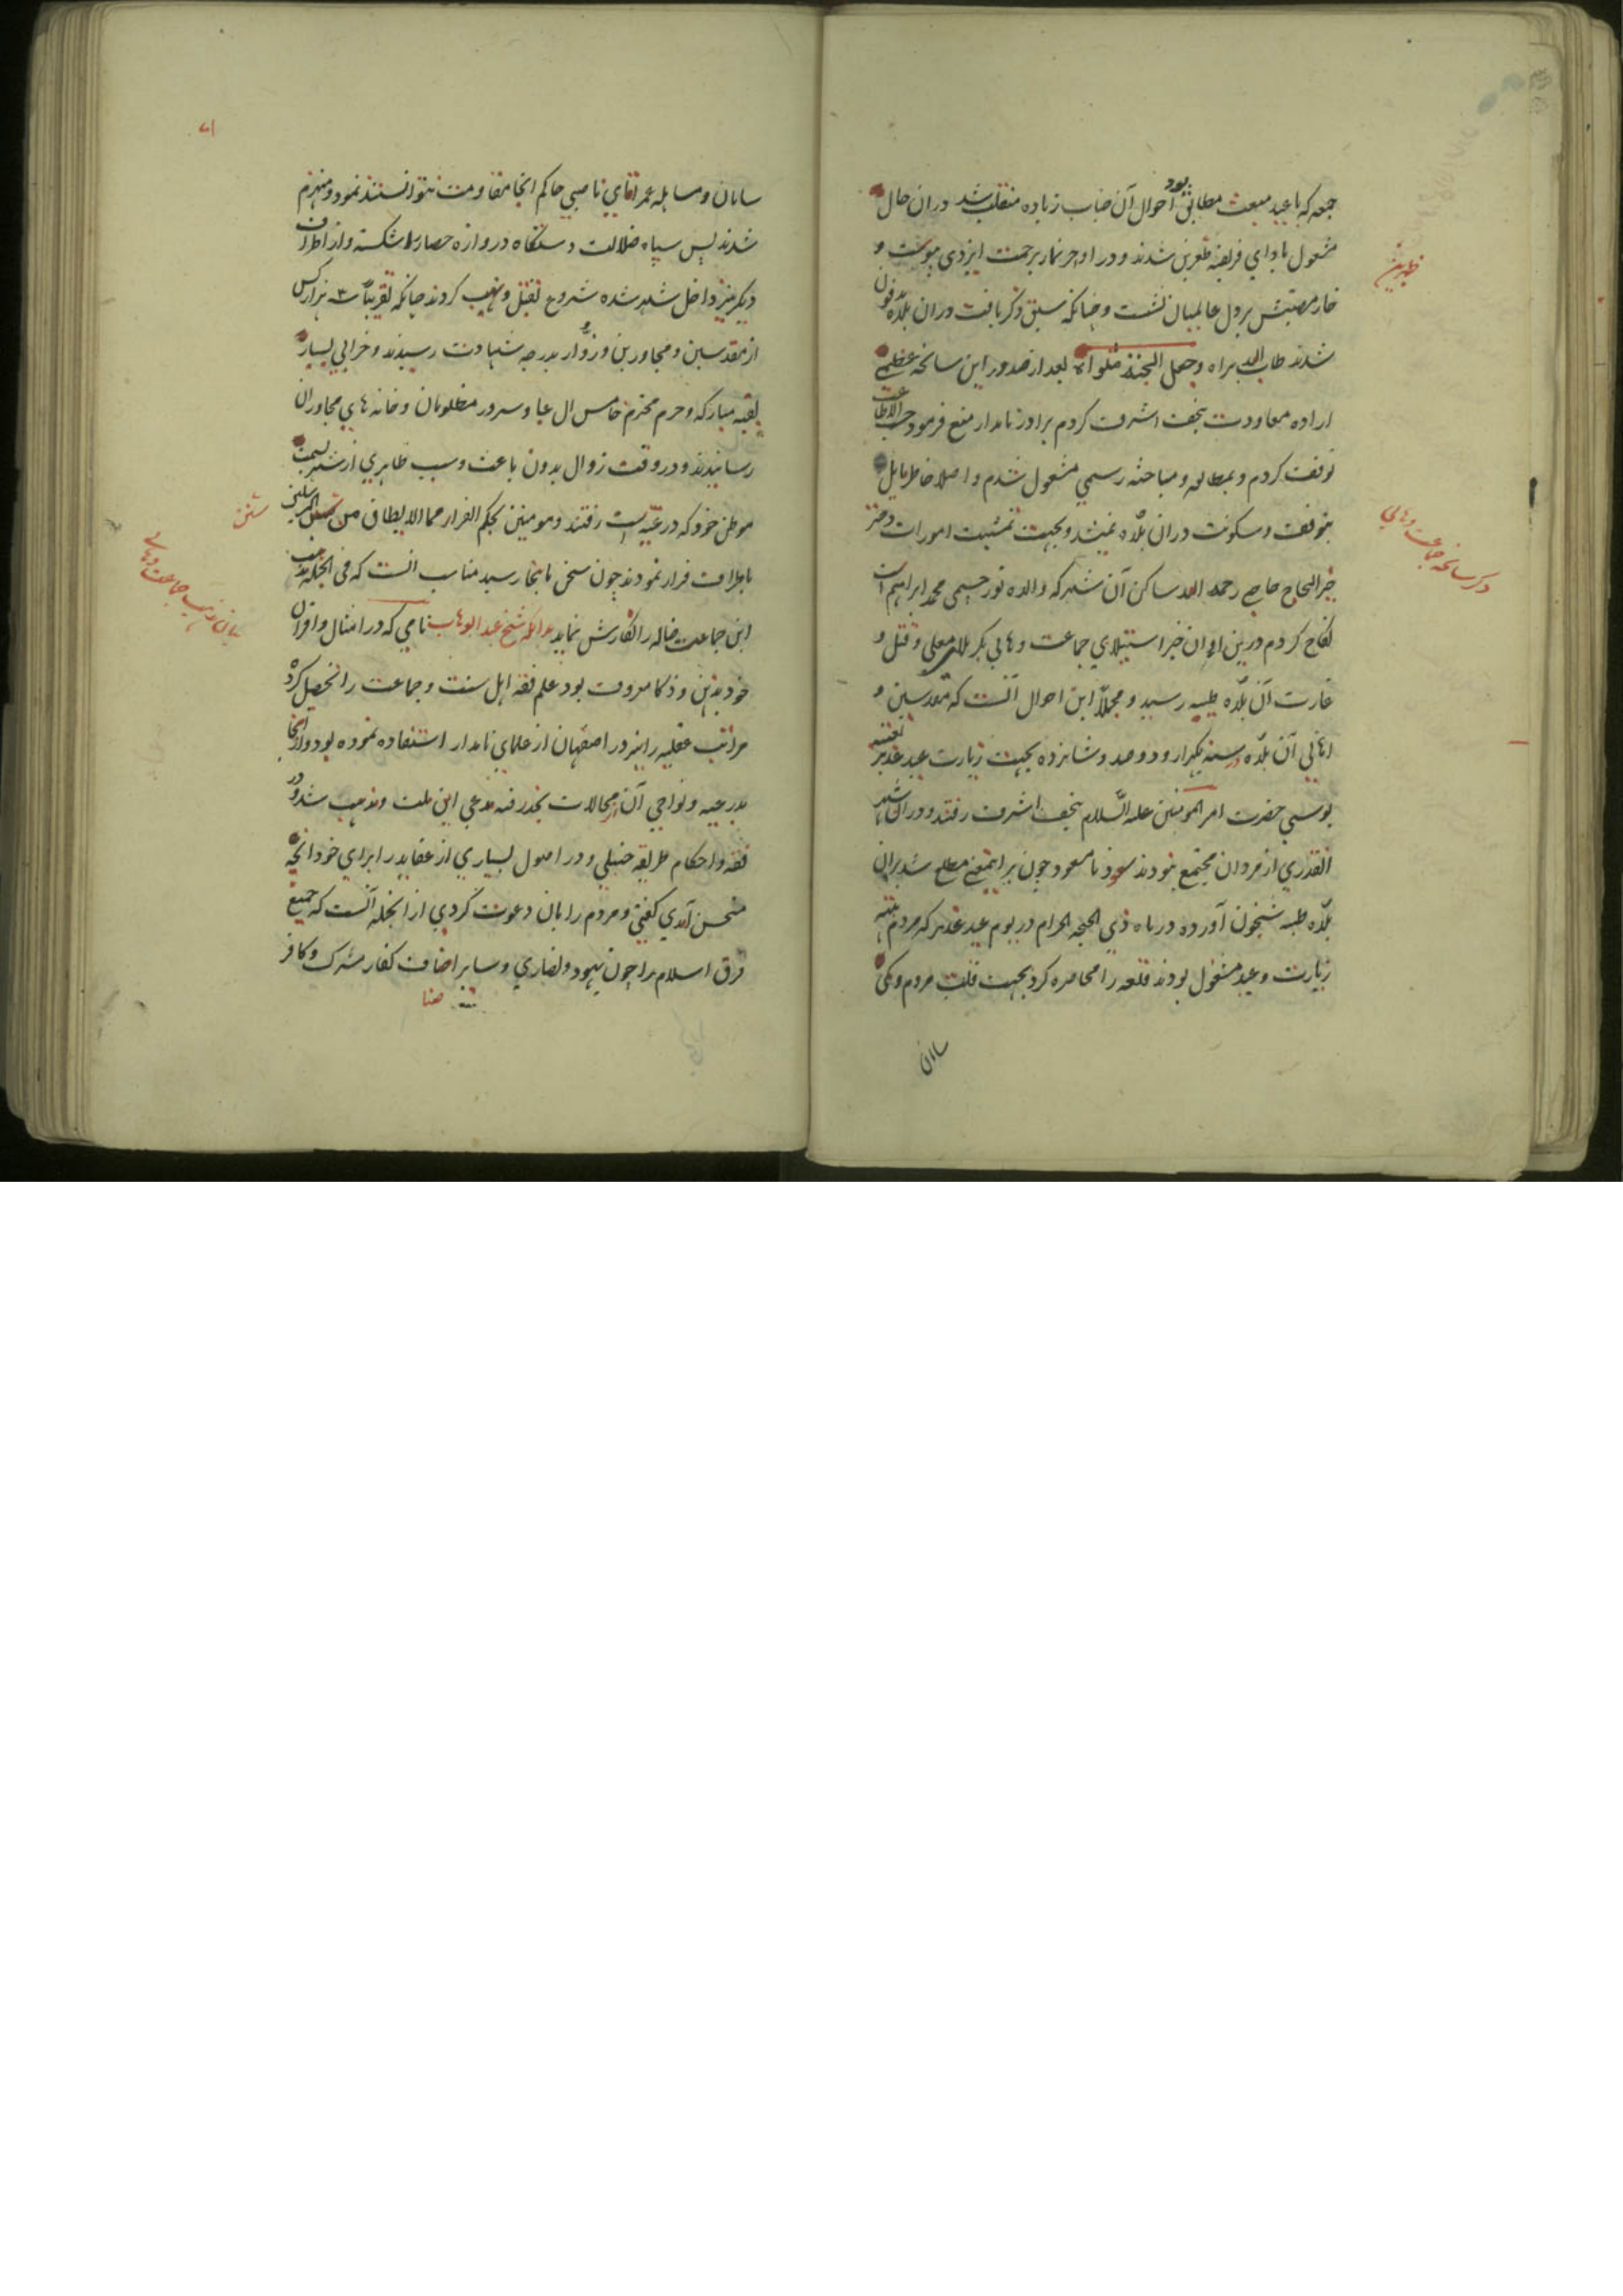 جمعه که با عید مبعث مطابق بود احوال آن جناب زیاده منقلب شد در ان حال
مشغول بادای فریضه ظهرین شدند و در اواخر نماز برحمت ایزدی پیوست و
ظهرین
خار مصیبتش بر دل عالمیان نشست و چنانکه سبق ذکر یافت در ان بلده مدفون
شدند طاب الله ثراه و جعل الجنة مثواه بعد از صدور این سانحه عظمی
اراده معاودت بنجف اشرف کردم برادر نامدار منع فرمود حسب الاطاعت
توقف کردم و بمطالعه و مباحثه رسمی مشغول شدم و اصلا خاطر مایل
بتوقف و سکونت در ان بلده نمیشد و بجهت تمشیت امورات دختر
خیر الحاج حاجی رحمة الله ساکن آن شهر که والده نور چشمی محمد ابراهیم است
نکاح کردم درین اوان خبر استیلای جماعت وهابی بکربلای معلی و قتل و
ذکر سانحه جماعت وهابی
غارت آن بلده طیبه رسید و مجملا این احوال آنست که مقدسین و
اهالی آن بلده در سنه یکهزار و دوصد و شانزده بجهت زیارت عید غدیر بعتبه
بوسی حضرت امیر المومنین علیه السلام بنجف اشرف رفتند و در ان شهر
انقدری از مردان مجتمع نبودند سعود نا مسعود چون بر اینمعنی مطلع شد بران
بلده طیبه شبخون آورده در ماه ذی الحجه الحرام در یوم عید غدیر که مردم بتهیه
زیارت و عید مشغول بودند قلعه را محاصره کرد بجهت قلت مردم و کمی
سامان
سامان و مساهله عمر اقای ناصبی حاکم انجا مقاومت نتوانستند نمود و منهزم
شدند پس سپاه ضلالت دستگاه دروازه حصار را شکسته و از اطراف
دیگر نیز داخل شهر شده شروع بقتل و نهب کردند چنانکه تقریبا ۳ هزار کس
از مقدسین و مجاورین و زوار بدرجه شهادت رسیدند و خرابی بسیار
بقبه مبارکه و حرم محترم خامس ال عبا و سرور مظلومان و خانه های مجاوران
رسانیدند و در وقت زوال بدون باعث و سبب ظاهری از شهر بسمت
موطن خود که درعیه است رفتند و مومنین بحکم الفرار مما لا یطاق من سنن المرسلین
سنن
باطراف فرار نمودند چون سخن باینجا رسید مناسب انست که فی الجمله مذهب
این جماعت ضاله را نگارش نماید بدانکه شیخ عبد الوهاب نامی که در امثال و اقران
بیان مذهب جماعت وهابی
خود بذهن و ذکا معروف بود علم فقه اهل سنت و جماعت را تحصیل کرد
مراتب عقلیه را نیز در اصفهان از علمای نامدار استفاده نموده بود و از انجا
بدرعیه و نواحی آن از محالات نجد رفته مدعی این ملت و مذهب شد و در
فقه و احکام طریقه حنبلی و در اصول بسیاری از عقاید را برای خود انچه
مستحسن آمدی گفتی و مردم را بان دعوت کردی از انجمله آنست که جمیع
فرق اسلام را چون یهود و نصاری و سایر اصناف کفار مشرک و کافر